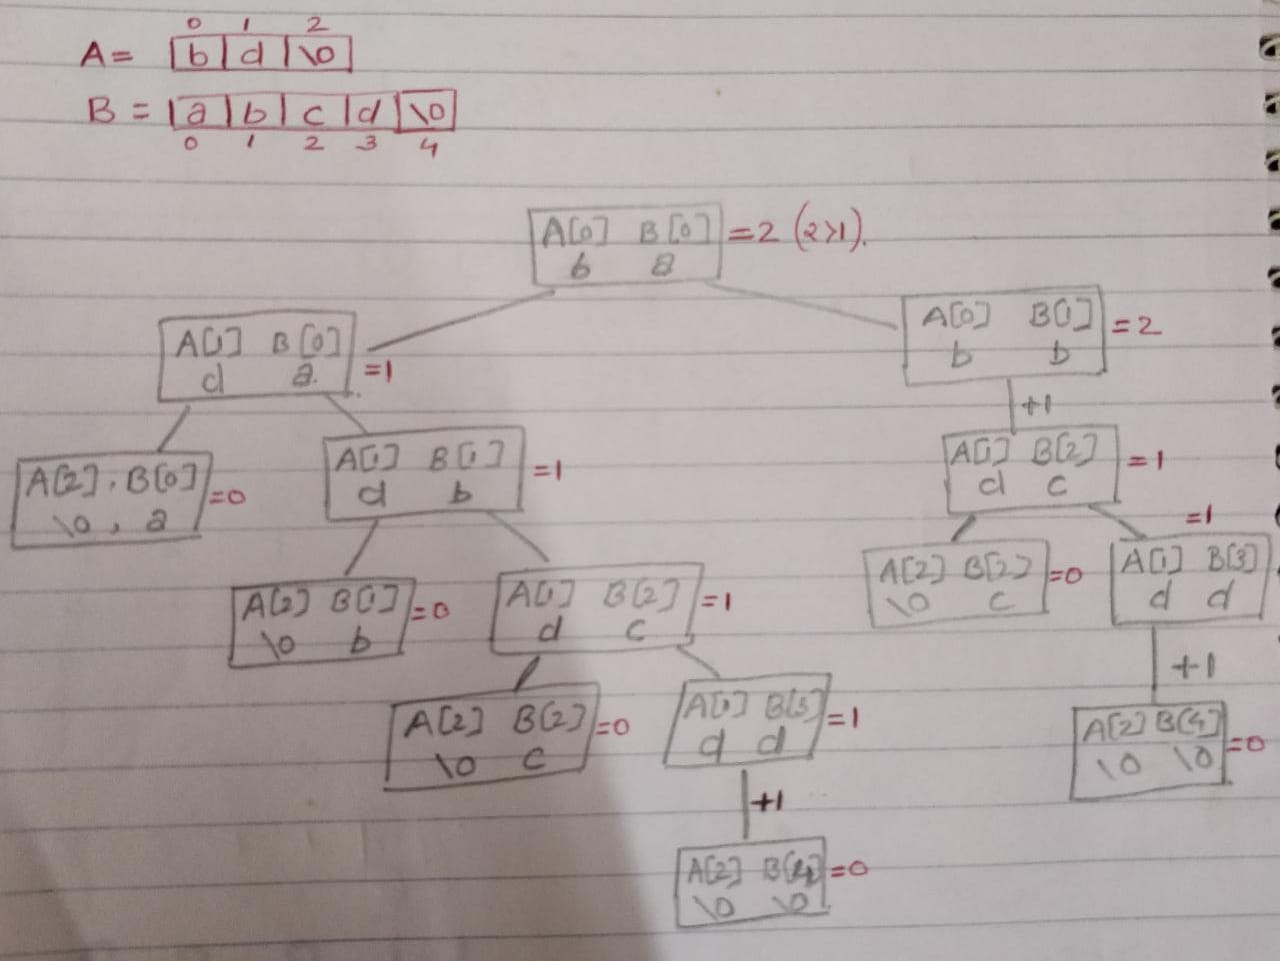 0 1 2
A= b d \0
B = a b c d \0
0 1 2 3 4
A[0] B[0] =2 (2>1).
b a
A[1] B[0] =1
d a
A[0] B[1] =2
b b
+1
A[2], B[0] =0
\0, a
A[1] B[1] =1
d b
A[1] B[2] =1
d c
A[2] B[1] =0
\0 b
A[1] B[2] =1
d c
A[2] B[2] =0
\0 c
=1
A[1] B[3]
d d
+1
A[2] B[2] =0
\0 c
A[1] B[3] =1
d d
+1
A[2] B[4] =0
\0 \0
A[2] B[4] =0
\0 \0